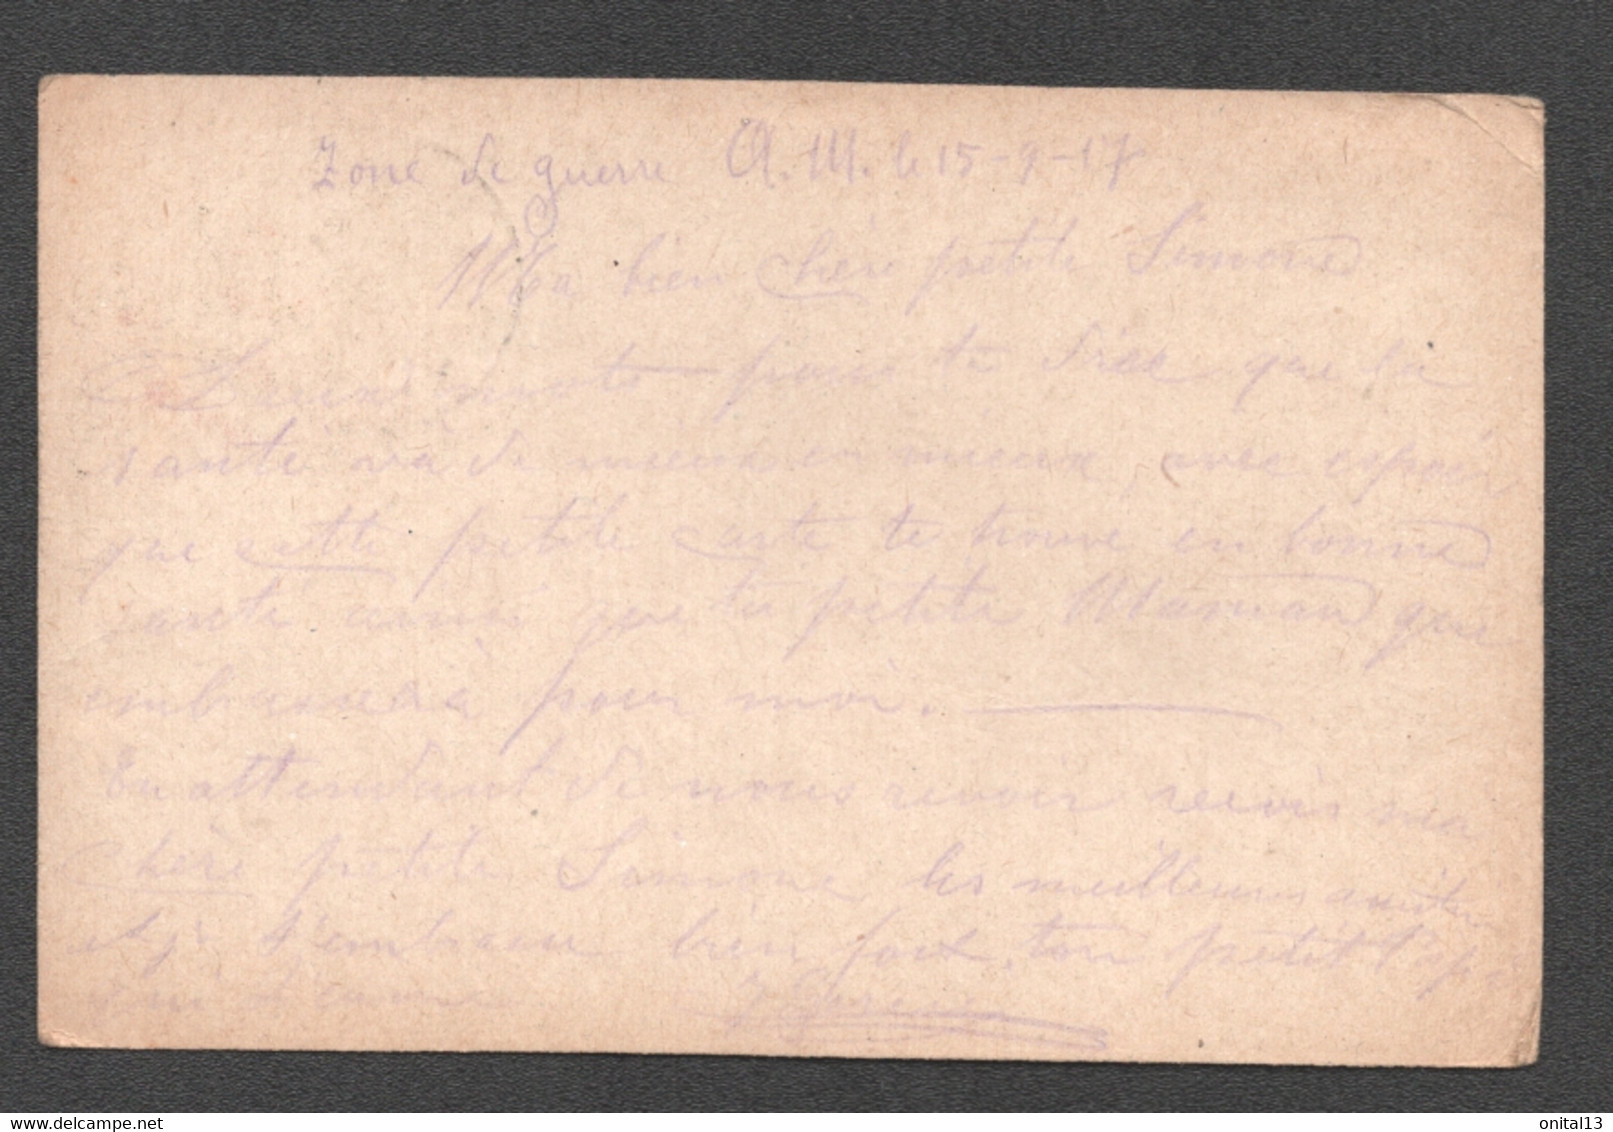 Zone de guerre A. M. le 15-9-17
Ma bien chère petite Simone
Deux mots pour te dire que la
santé va de mieux en mieux, avec espoir
que cette petite carte te trouve en bonne
santé ainsi que ta petite Maman que
embrassera pour moi.
En attendant de nous revoir reçois ma
chère petite Simone les meilleures amitiés
et je t'embrasse bien fort, ton petit Papa
qui t'aime
onital13